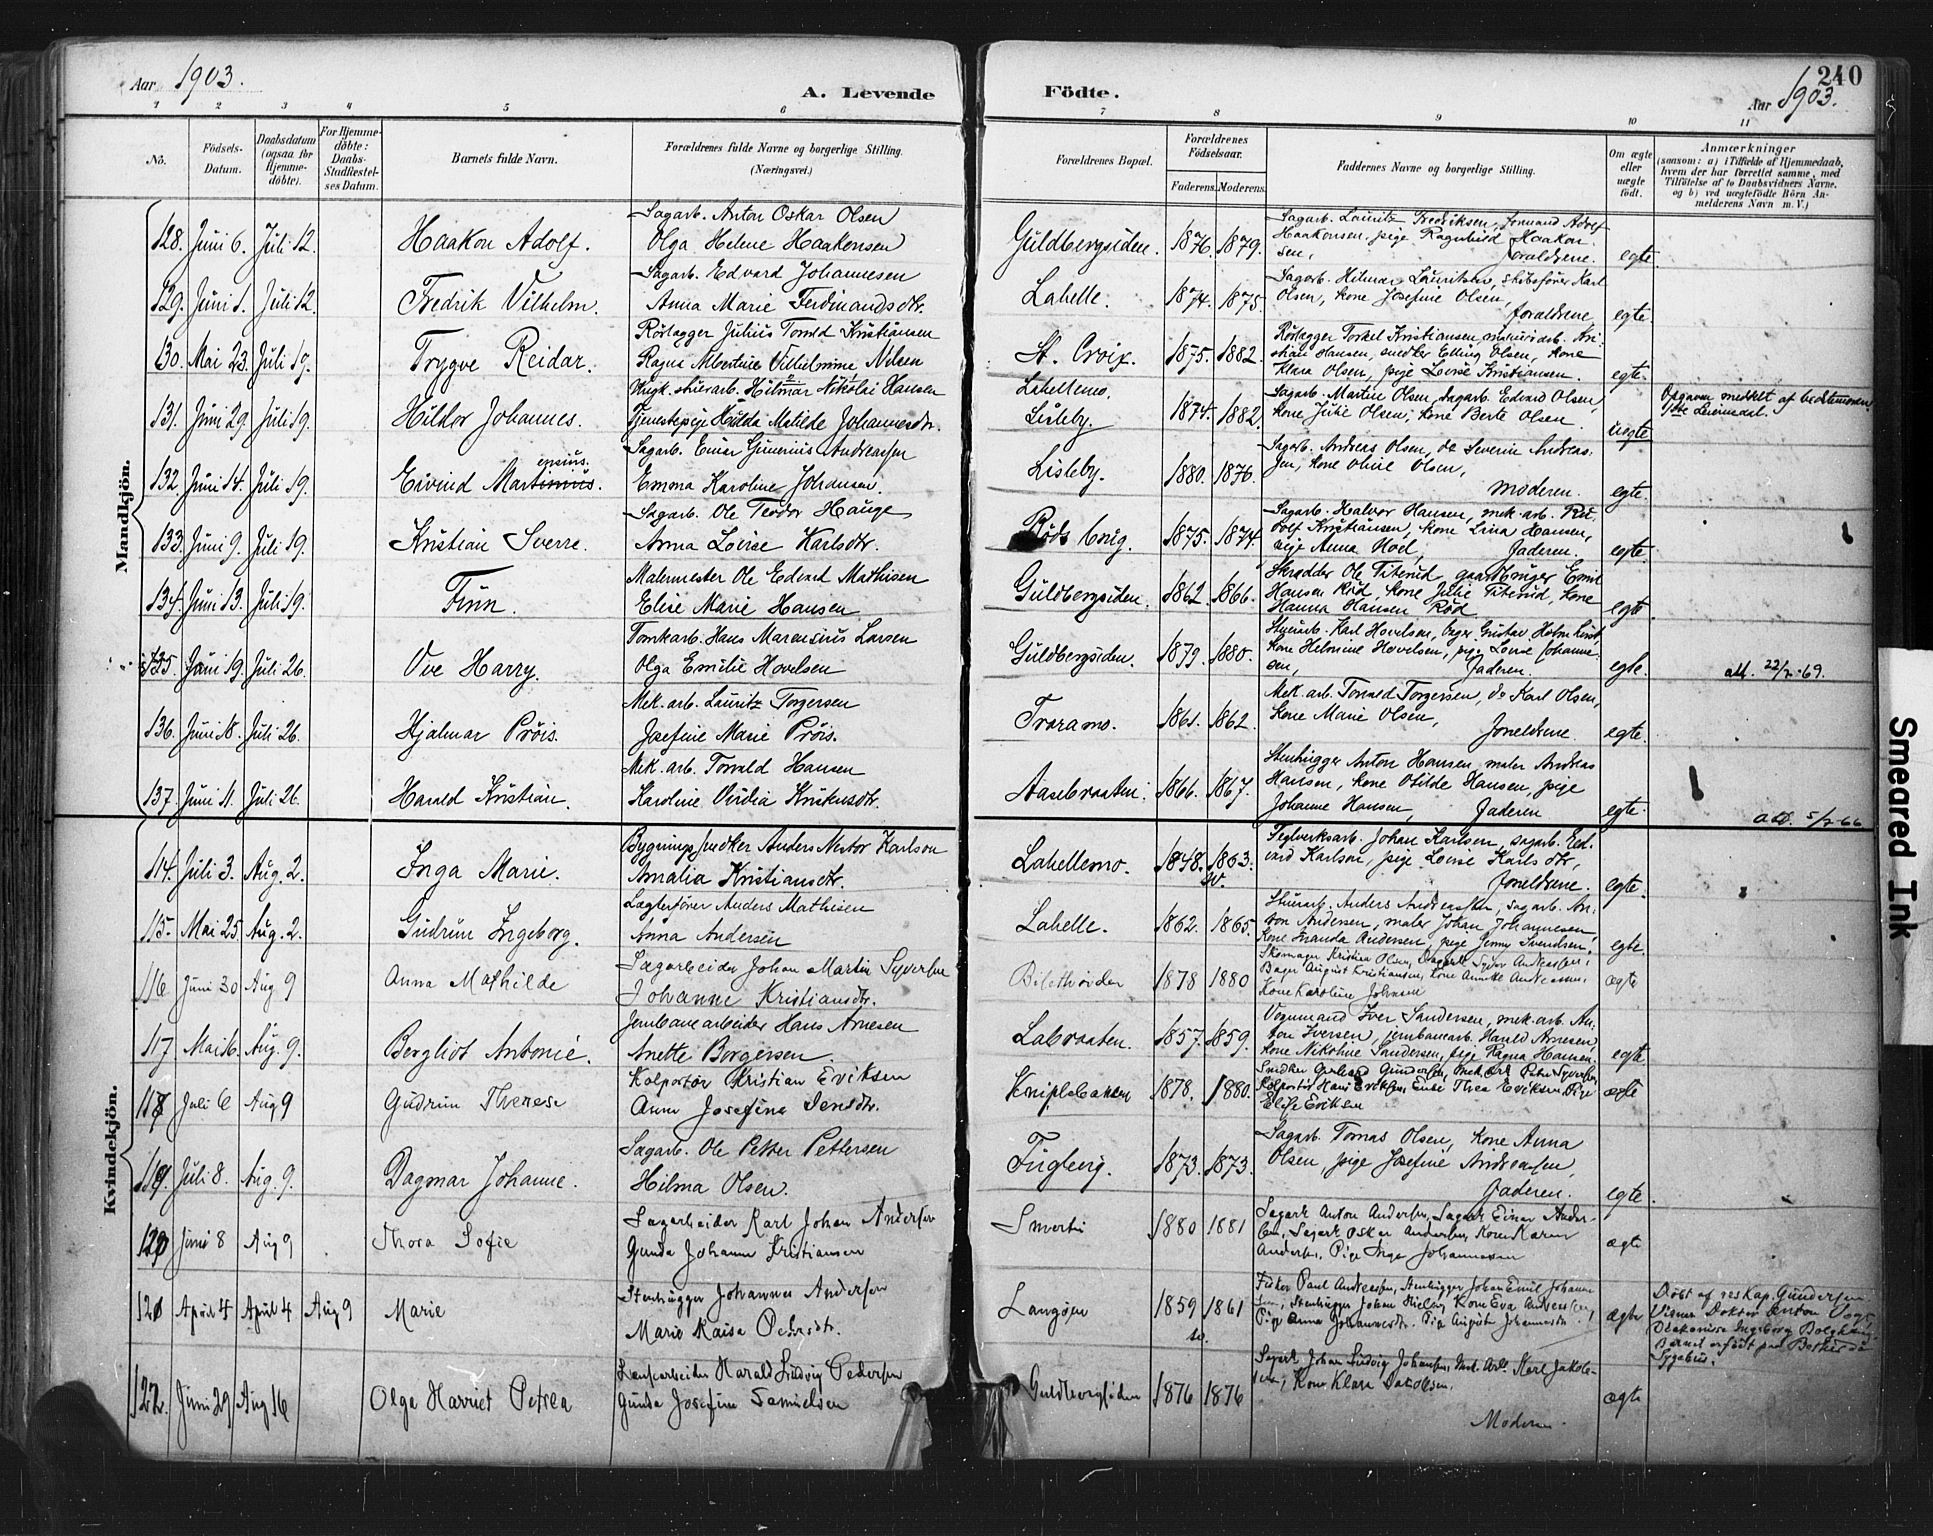 Aar 1903.
A. Levende
Födte.
240
Aar 1903.
1 2 3 4 5 6 7 8 9 10 11
No.
Födsels-Datum.
Daabsdatum (ogsaa for Hjemme-döbte).
For Hjemme-döbte: Daabs-Stadfæstel-ses Datum.
Barnets fulde Navn.
Forældrenes fulde Navne og borgerlige Stilling. (Næringsvei.)
Forældrenes Bopæl.
Forældrenes Fødselsaar.
Faderens. Moderens.
Faddernes Navne og borgerlige Stilling.
Om ægte eller uægte födt.
Anmærkninger
(saasom: a) i Tilfælde af Hjemmedaab, hvem der har forrettet samme, med Tilføielse af to Daabsvidners Navne, og b) ved uægtefödte Börn An-melderens Navn m. V.)
Mandkjön.
128. Juni 6. Juli 12. Haakon Adolf. Sagarb. Anton Oskar Olsen
Olga Helene Haakensen Guldbergsiden. 1876. 1879. Sagarb. Lauritz Fredriksen, formand Adolf Haakonsen, pige Ragnhild Haakonsen, foraldrene. egte.
129. Juni 1. Juli 12. Fredrik Vilhelm. Sagarb. Edvard Johannesen
Anna Marie Ferdinandsdtr. Lahelle. 1874. 1875. Sagarb. Hilmar Lauritsen, skibsfører Karl Olsen, kone Josefine Olsen, foraldrene egte.
130. Mai 23. Juli 19. Trygve Reidar. Rørlægger Julius Torvald Kristiansen
Ragna Albertine Vilhelmine Nilsen St. Croix. 1875. 1882. Rørlægger Torkel Kristiansen, Kristian Hansen, snedker Elling Olsen, kone Klara Olsen, pige Lovise Kristiansen. egte.
131. Juni 29. Juli 19. Hildor Johannes. Hilmar Nikolai Hansen
Tjenestepige Hulda Matilde Johannesdtr. Lahellemo. Lisleby. 1874. 1882. Sagarb. Martin Olsen, Sagarb. Edvard Olsen, kone Julie Olsen, kone Berte Olsen. uegte
Opgaven meddelt af bedstemoren
132. Juni 14. Juli 19. Eivind Martinius. ensius. Sagarb. Einar Gunerius Andreassen
Emma Karoline Johansen. Lisleby. 1880. 1876. Sagarb. Andreas Olsen, do Severin Andreassen, kone Oline Olsen, moderen. egte.
133. Juni 9. Juli 19. Kristian Sverre. Sagarb. Ole Teodor Hauge
Anna Lovise Karlsdtr. Røds brug. 1875. 1874. Sagarb. Halvor Hansen, mek. arb. Rudolf Kristiansen, kone Lina Hansen, pige Anna Moel, Faderen. egte.
134. Juni 13. Juli 19. Finn. Malermester Ole Edvard Mathisen
Elise Marie Hansen Guldbergsiden. 1862. 1866. Skrædder Ole Titerud, gaardbruger Emil Hansen Rød, kone Julie Titerud, kone Hanna Hansen Rød egte
135. Juni 19. Juli 26. Ove Harry. Tomtarb. Hans Marensius Larsen
Olga Emilie Hovelsen Guldbergsiden. 1879. 1880. Karl Hovelsen, Gustav Holm, kone Helmine Hovelsen, pige Lovise Johannesen, Faderen. egte. 22/2-69.
136. Juni 18. Juli 26. Hjalmar Prøis. Mek. arb. Lauritz Torgersen
Josefine Marie Prøis. Traramo. 1861. 1862. Mek. arb. Torvald Torgersen, do Karl Olsen, kone Marie Olsen, foreldrene egte.
137. Juni 11. Juli 26. Harald Kristian. Mek. arb. Torvald Hansen
Karoline Kristensdtr. Aasebraaten. 1866. 1867. Stenhugger Anton Hansen, maler Andreas Hansen, kone Otilde Hansen, pige Johanne Hansen, Faderen egte. 5/2-66
Kvindekjön.
114. Juli 3. Aug. 2. Inga Marie. Bygningssnedker Anders Nestor Karlson
Amalia Kristiansdtr. Lahellemo. 1848. sv. 1863. Teglverksarb. Johan Karlsen, sagarb. Edvard Karlson, pige Lovise Karlsdtr, foreldrene. egte.
115. Mai 25. Aug. 2. Gudrun Ingeborg. Lægterfører Anders Mathisen
Anna Andersen Lahelle. 1862. 1865. Anders Andreassen, sagarb. Anton Andersen, maler Johan Johannesen, kone Amanda Andersen, pige Jenny Svendsen. egte.
116 Juni 30 Aug 9 Anna Mathilde Sagarbeider Johan Martin Syversen
Johanne Kristiansdtr. 1878 1880 Skomager Kristian Olsen, Sagarb. Syver Andreassen, Bager August Kristiansen, Kone Annette Andreassen, Kone Karoline Johnsen ægte
117 Mai 16. Aug. 9. Bergliot Antonie. Jernbanearbeider Hans Arnesen
Anette Borgersen. Labraaten. 1857. 1859. Vognmand Iver Sandersen, mek. arb. Anton Iversen, jernbanearb. Harald Arnesen, kone Nikoline Sandersen, pige Ragna Hansen. egte
118 Juli 6 Aug 9 Gudrun Therese Kolportør Kristian Eriksen
Anne Josefine Jensdtr. Kniplebakken 1878. 1880. Snedker Gerhard Gundersen, Mek. arb. Peter Syversen, Kolportør Hans Eriksen, Enke Thea Eriksen, Pige Elise Eriksen ægte
119. Juli 8. Aug. 9. Dagmar Johanne. Sagarb. Ole Petter Pettersen
Hilma Olsen. Fuglevig. 1873. 1873. Sagarb. Tomas Olsen, kone Anna Olsen, pige Josefine Andreassen, Faderen. egte.
120 Juni 8 Aug 9 Thora Sofie Sagarbeider Karl Johan Andersen
Gunda Johanne Kristiansen Smertu 1880 1881 Sagarb Anton Andersen, Sagarb Einar Andersen, Sagarb Oskar Andersen, Kone Karen Andersen, Pige Inga Johannessen ægte
121 April 4 April 4 Aug 9 Marie Stenhugger Johannes Andersen
Marie Kaisa Petersdtr. Langøen 1859 sv. 1861 Fisker Paul Andreassen, Stenhugger Johan Emil Johannsen, Stenhugger Johan, Kone Eva Andreassen, Pige Anna Johannesdtr. Pige Augusta Johannesdtr. ægte
Døbt af res. Kap. Gundersen
Vidner Doktor Anton
Diakonisse Ingeborg
Barnet er født paa
Sygehus.
122. Juni 29 Aug 16 Olga Harriet Petrea Harald Ludvig Pedersen
Gunda Josefine Samuelsen Guldbergsiden 1876 1876 Sagarb Johan Ludvig Johansen, Mek. Arb. Karl Jakobsen, Kone Klara Jakobsen, Moderen. ægte
Smeared Ink